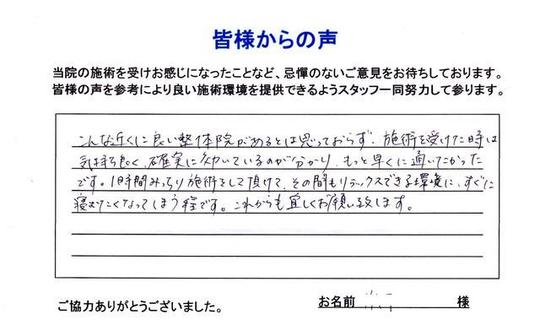 皆様からの声
当院の施術を受けお感じになったことなど、忌憚のないご意見をお待ちしております。
皆様の声を参考により良い施術環境を提供できるようスタッフ一同努力して参ります。
こんな近くに良い整体院があるとは思っておらず、施術を受けた時は
気持ち良く、確実に効いているのが分かり、もっと早くに通いたかった
です。1時間みっちり施術をして頂けて、その間もリラックスできる環境に、すぐに
寝むたくなってしまう程です。これからも宜しくお願い致します。
ご協力ありがとうございました。
お名前 様